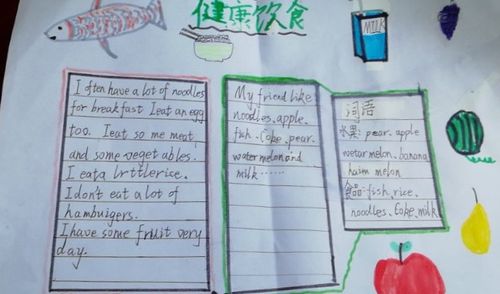 健康饮食
MILK
I often have a lot of noodles
for breakfast I eat an egg
too. I eat so me meat
and some veget ables.
I eat a lrttlerice.
I don't eat a lot of
hambuigers.
I have some fruit very
day.
My friend like
noodles、apple.
fish、Coke、pear.
water melon and
milk ……
词语
水果: pear、apple
wetar melon、banana
haim melon
食品-fish、rice、
noodles、Coke、milk